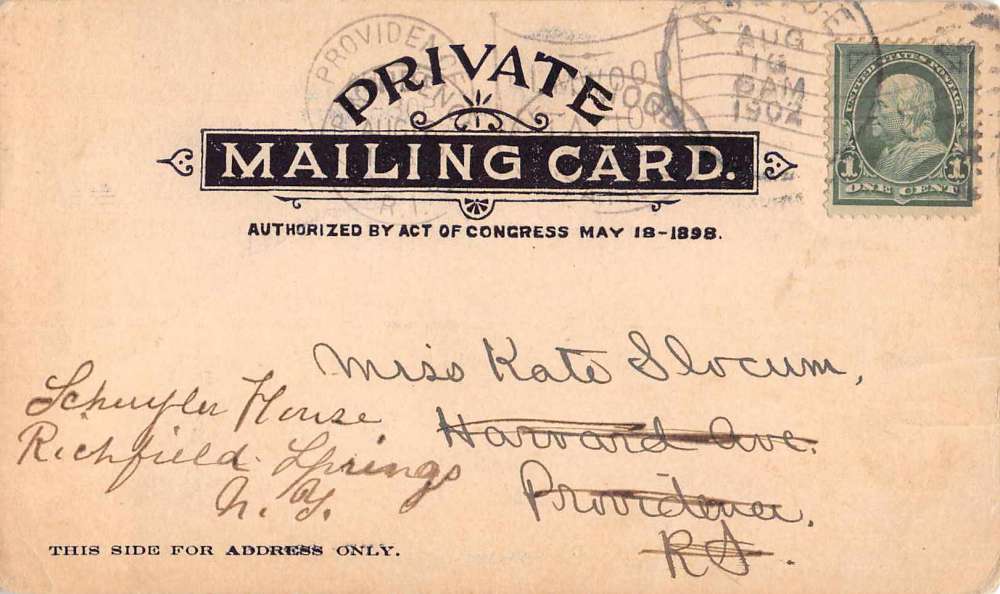 PRIVATE
MAILING CARD.
AUTHORIZED BY ACT OF CONGRESS MAY 18-1898.
AUG
6 AM
190
UNITED STATES POSTAGE
1 1
ONE CENT
PROVIDEN
R.I.
Miss Kate Slocum,
Harvard Ave.
Providence,
R.I.
Schuyler House
Richfield Springs
N.Y.
THIS SIDE FOR ADDRESS ONLY.